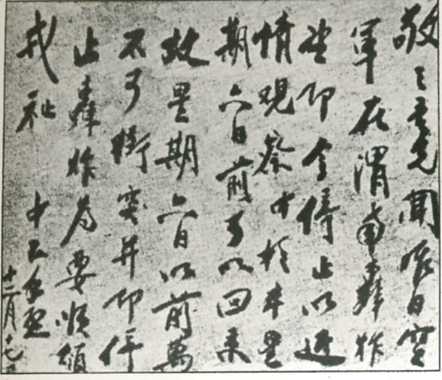 敬之吾兄聞昨日空
軍在渭南轟炸
望即令停止以近
情觀察中於本星
期六日前可以回來
故星期六日以前萬
不可衝突并即停
止轟炸為要順頌
戎祉 中正手啟
十二月十七日